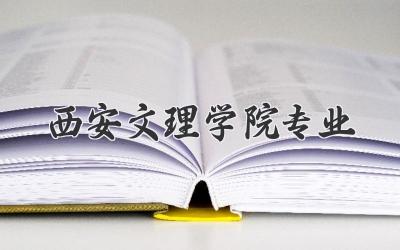 西安文理学院专业